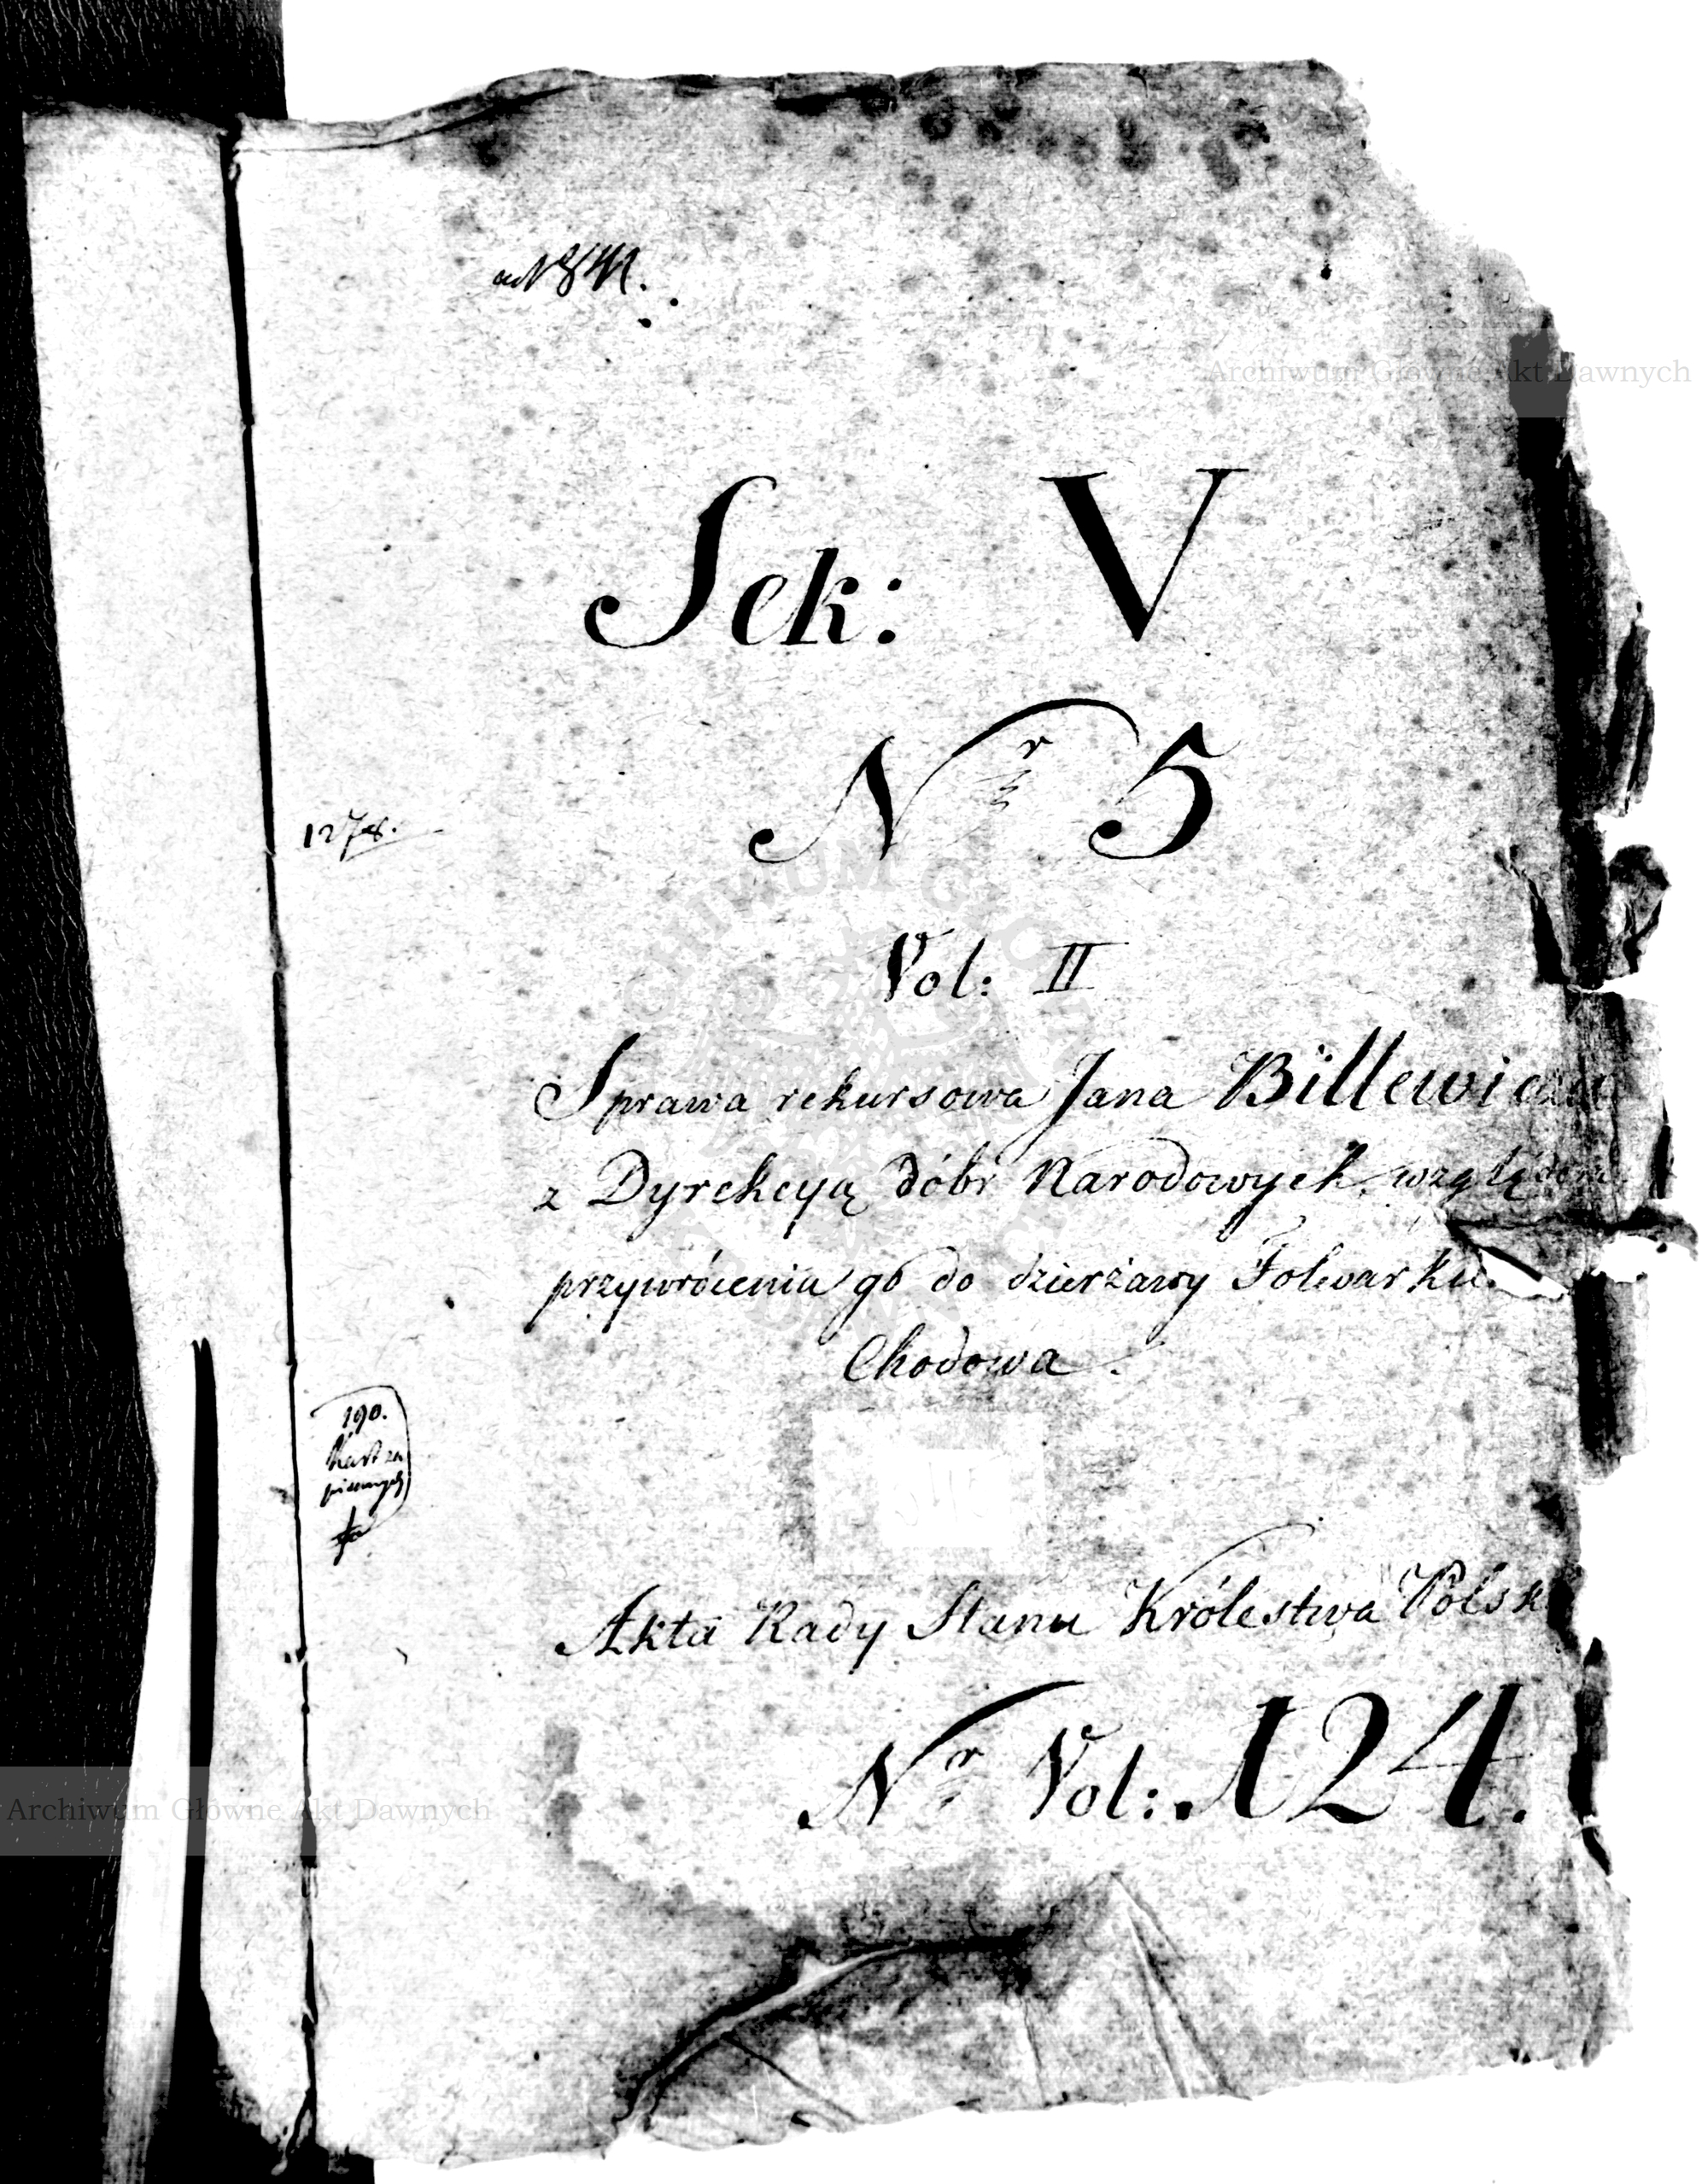 Sek: V
Nr 5
1278.
Vol: II
Sprawa rekursowa Jana Billewicza
z Dyrekcyą dóbr Narodowych, względem
przywrócenia go do dzierżawy Folwarku
Chodowa.
190.
Kart za
pisanych
Akta Rady Stanu Królestwa Polsk
Nr Vol: 124.
Archiwum Główne Akt Dawnych
Archiwum Główne Akt Dawnych